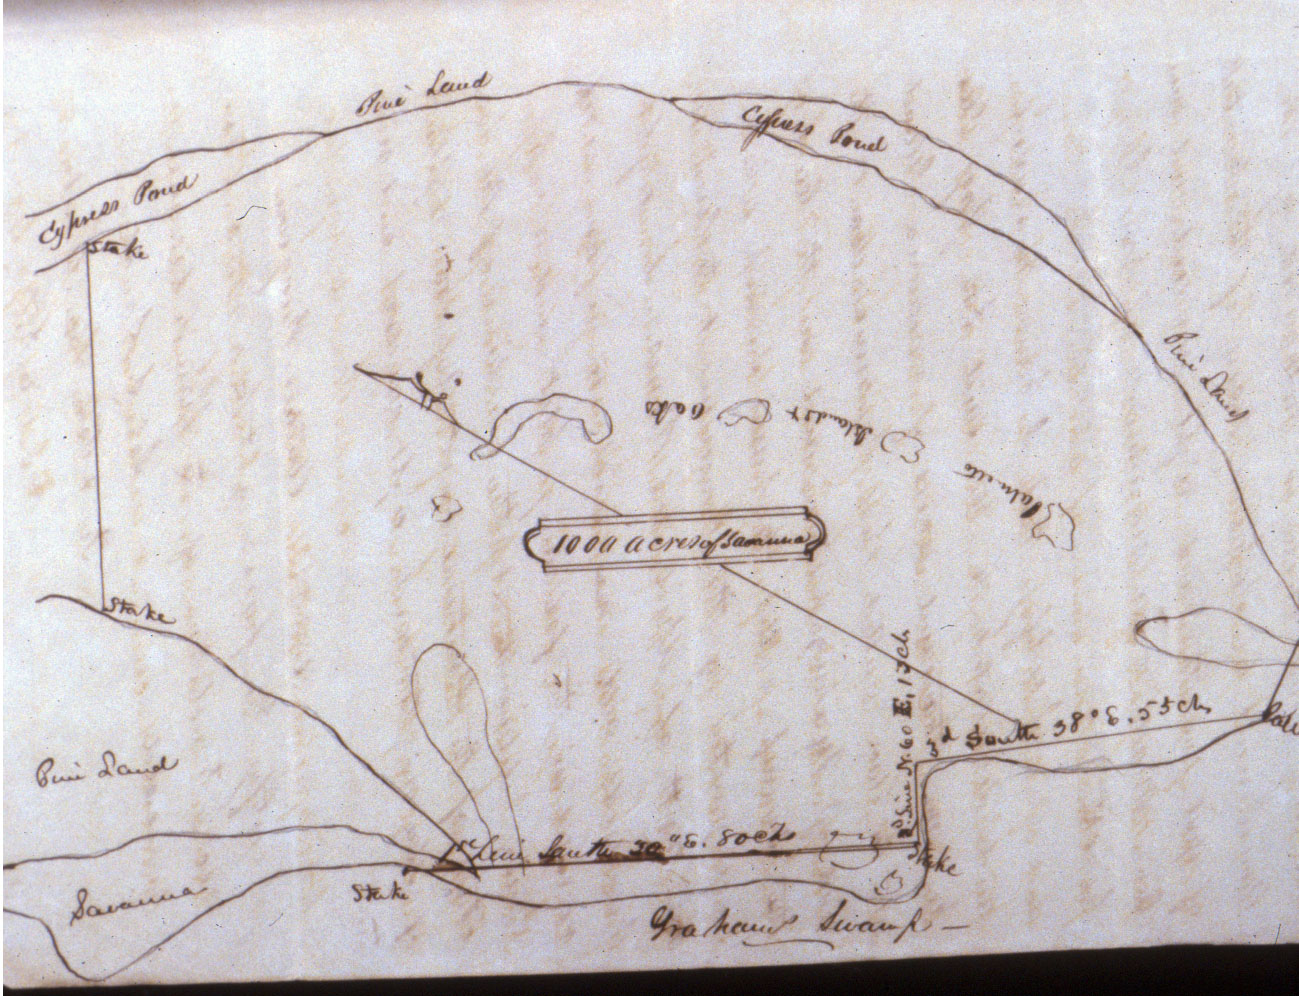 Pine Land
Cypress Pond
Cypress Pond
Stake
Pine Land
Islands & Oaks
Palmetto
1000 acres of Savanna
Stake
2d. Line N. 60 E, 13 chs
3d South 38° E. 55 chs
Pine Land
1st Line South 30° E. 80 chs
Stake
Stake
Savanna
Graham's Swamp